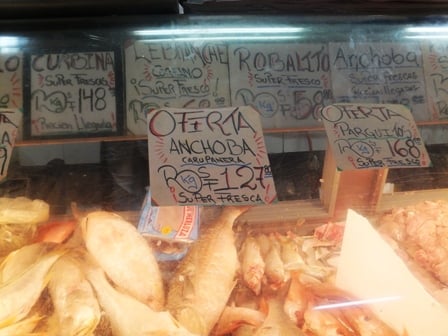 CURBINA
SUPER FRESCAS
Kg 148
Recien llegada
LEBRANCHE
COSTINO
SUPER FRESCO
Kg
ROBALITO
SUPER FRESCO
Kg 158
Anchoba
SUPER FRESCAS
Recien llegadas
OFERTA
ANCHOBA
CARUPANERA
Kg BSF 127.00
SUPER FRESCA
OFERTA
PARGUITO
Kg 168
SUPER FRESCO